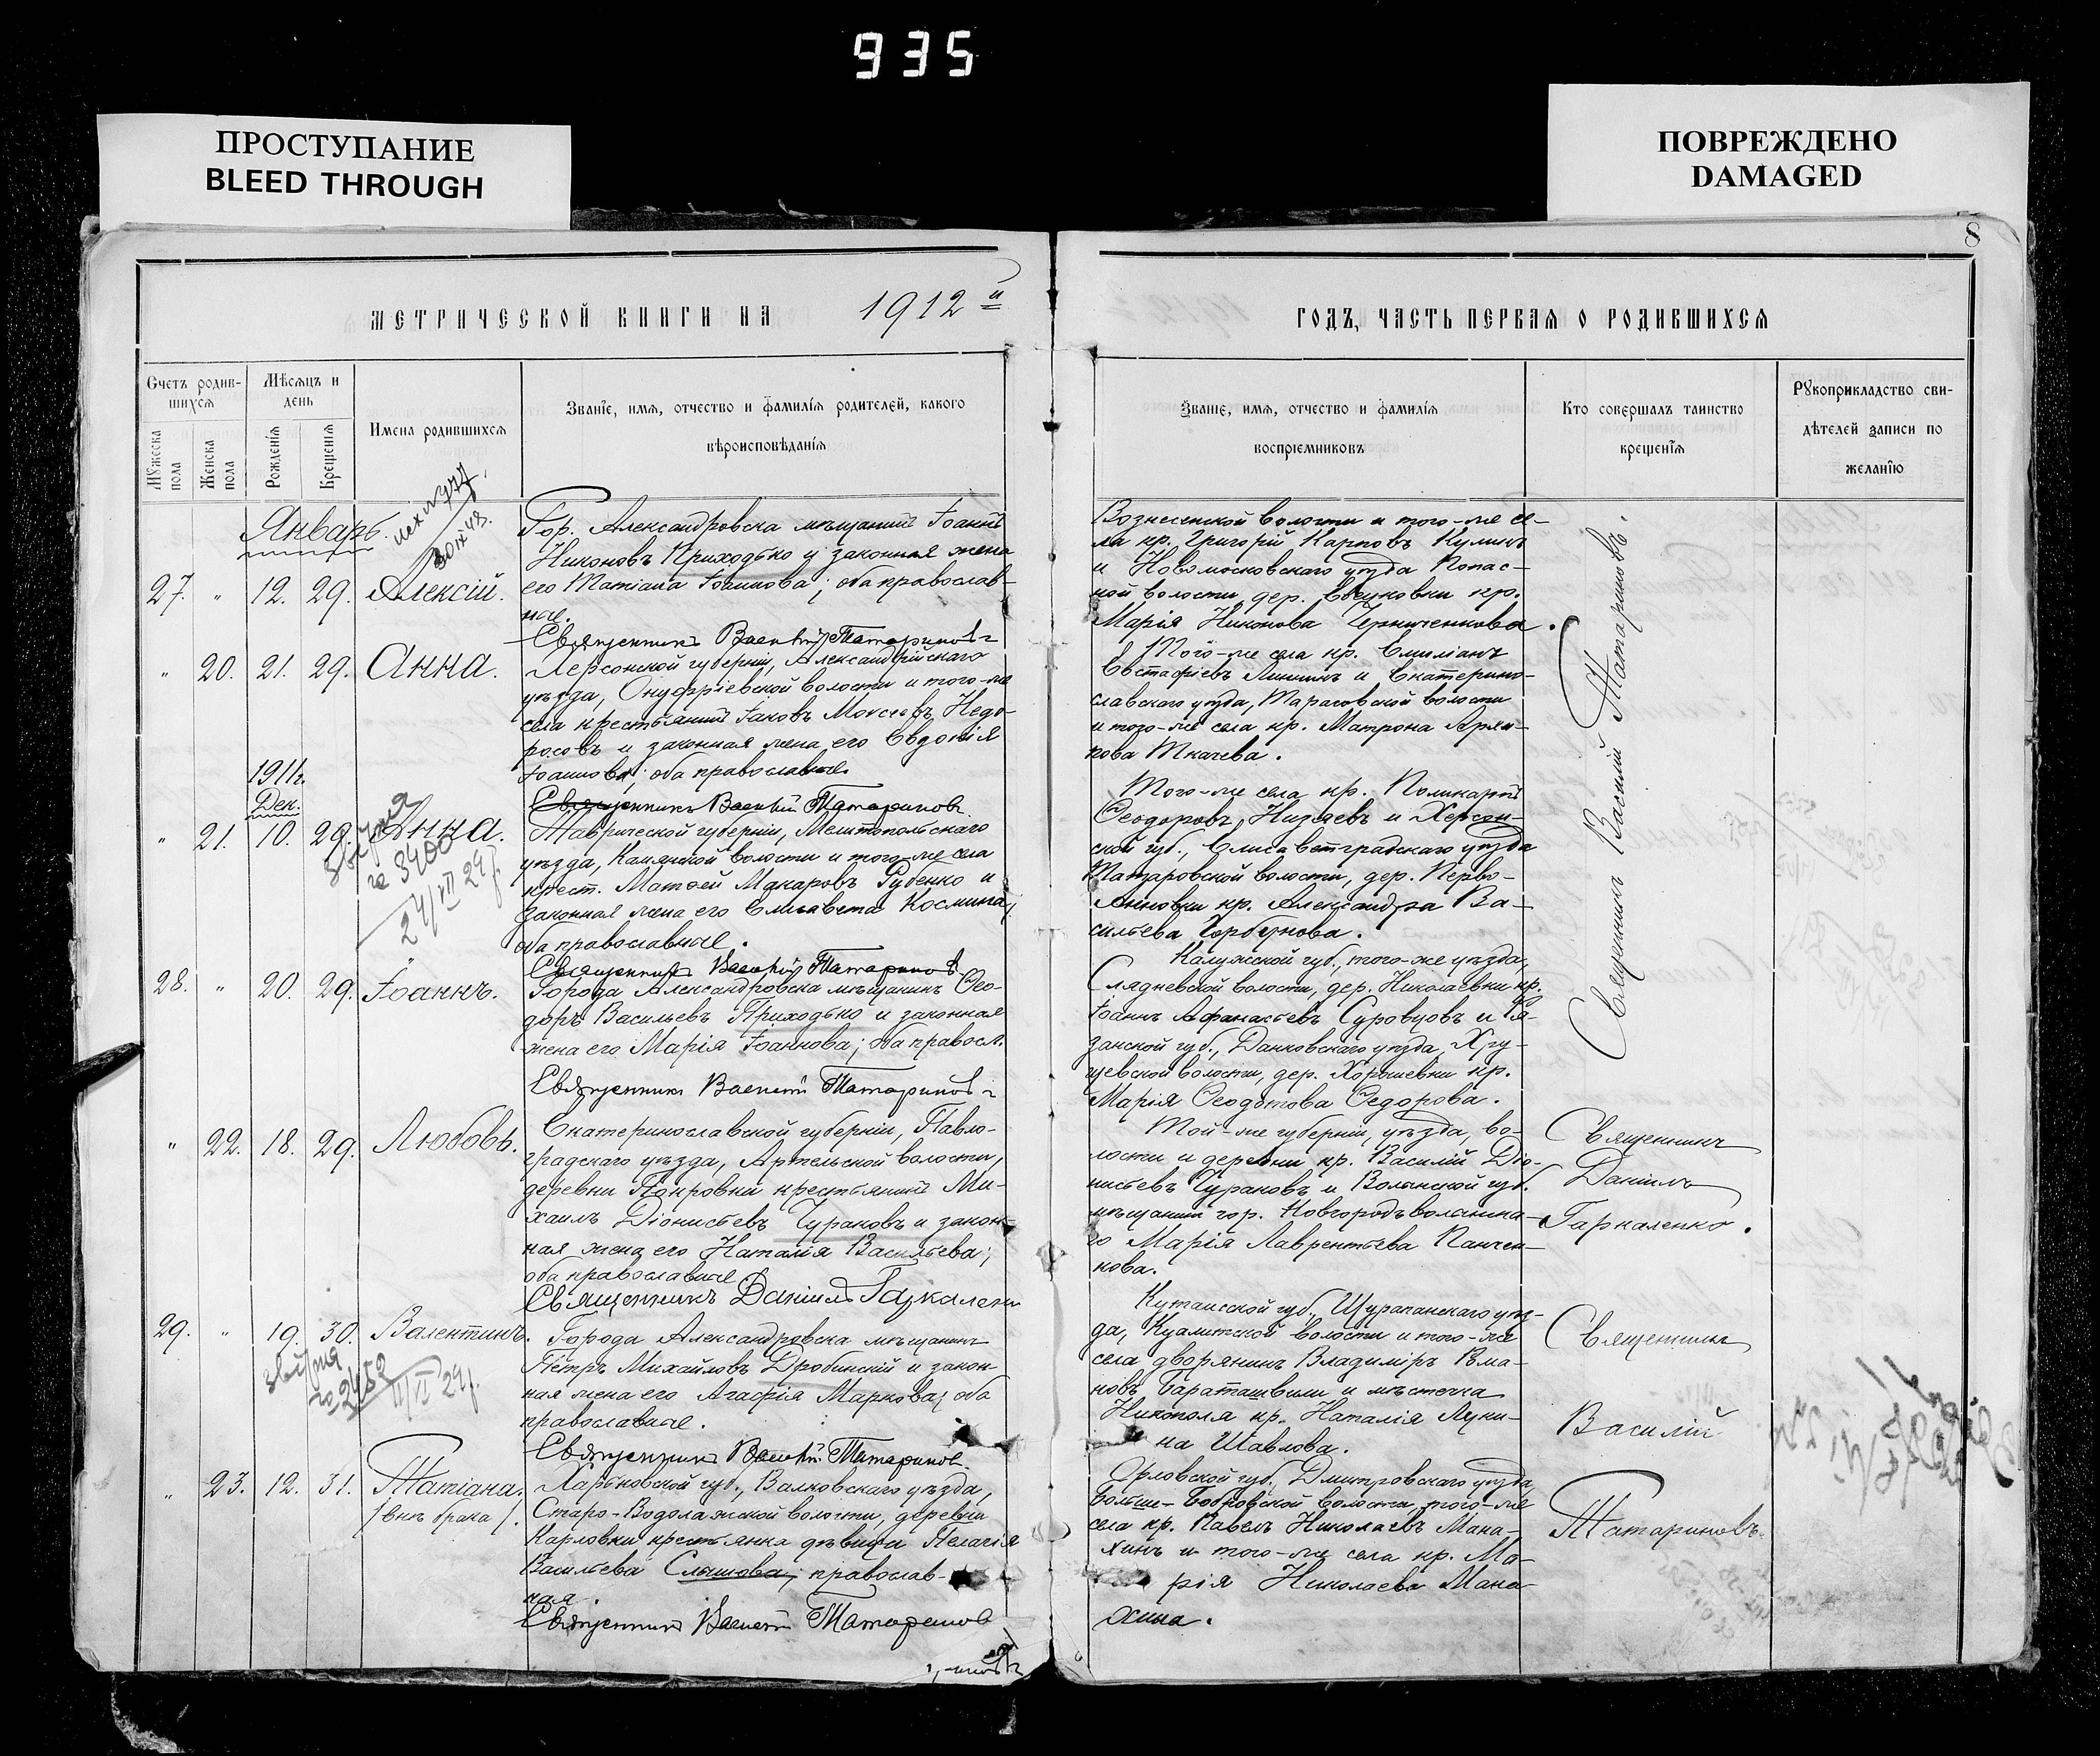 935
ПРОСТУПАНИЕ
BLEED THROUGH
ПОВРЕЖДЕНО
DAMAGED
8
МЕТРИЧЕСКОЙ КНИГИ НА 1912 й
Счетъ родив-
шихся
Мѣсяцъ и
день
Имена родившихся
Званіе, имя, отчество и фамилія родителей, какого
вѣроисповѣданія
Мужеска
пола
Женска
пола
Рожденія
Крещенія
Январь.
30 IX 48.
27. " 12. 29. Алексій.
Гор. Александровска мѣщанинъ Іоаннъ
Никоновъ Приходько и законная жена
его Татіана Іоаннова; оба православ-
ные.
Священникъ Василій Татариновъ
" 20. 21. 29. Анна.
Херсонской губерніи, Александрійскаго
уѣзда, Онуфріевской волости и того-же
села крестьянинъ Іаковъ Моисеевъ Недо-
росовъ и законная жена его Евдокія
Іоаннова; оба православные.
Священникъ Василій Татариновъ
1911г.
Дек.
" 21. 10. 29. Анна.
3400
24/VII 24г.
Таврической губерніи, Мелитопольскаго
уѣзда, Камянской волости и того-же села
крест. Матѳей Макаровъ Рубенко и
законная жена его Елисавета Космина;
оба православные.
Священникъ Василій Татариновъ
28. " 20. 29. Іоаннъ.
Города Александровска мѣщанинъ Ѳео-
доръ Васильевъ Приходько и законная
жена его Марія Іоаннова; оба правосл.
Священникъ Василій Татариновъ
" 22. 18. 29. Любовь.
Екатеринославской губерніи, Павло-
градскаго уѣзда, Артельской волости,
деревни Покровки крестьянинъ Ми-
хаилъ Діонисьевъ Чураковъ и закон-
ная жена его Наталія Васильева;
оба православные
Священникъ Даніилъ Гаркаленко
29. " 19. 30. Валентинъ.
Города Александровска мѣщанинъ
Петръ Михайловъ Дробинскій и закон
ная жена его Агафія Маркова; оба
православные.
Священникъ Василій Татариновъ
" 23. 12. 31. Татіана.
/внѣ брака/.
Харьковской губ., Валковскаго уѣзда,
Старо-Водолажской волости, деревни
Карловки крестьянка дѣвица Пелагія
Васильева Слышова; православ-
ная.
Священникъ Василій Татариновъ
ГОДЪ, ЧАСТЬ ПЕРВАЯ О РОДИВШИХСЯ
Званіе, имя, отчество и фамилія
воспріемниковъ
Кто совершалъ таинство
крещенія
Рукоприкладство сви-
дѣтелей записи по
желанію
Вознесенской волости и того-же се-
ла кр. Григорій Карповъ Кулинъ
и Новомосковскаго уѣзда Попас-
ной волости, дер.
кр.
Марія Никонова Черниченкова.
Того-же села кр. Емиліанъ
Евстафіевъ и Екатерино-
славскаго уѣзда, Тарасовской волости
и того-же села, кр. Матрона
Ткачева.
Того-же села кр. Поликарпъ
Ѳеодоровъ Низяевъ и Херсон-
ской губ., Елисаветградскаго уѣзда
волости, дер. Перво-
Анновки кр. Александра Ва-
сильева Горбунова.
Калужской губ., того-же уѣзда,
волости, дер. Николаевки кр.
Іоаннъ Афанасьевъ Суровцовъ и Ря-
занской губ., Данковскаго уѣзда, Хру-
щевской волости, дер. Хорошевки кр.
Марія Ѳеодотова Ѳедорова.
Священникъ Василій Татариновъ.
Той-же губерніи, уѣзда, во-
лости и деревни кр. Василій Діо-
нисьевъ Чураковъ и Волынской губ.
мѣщанка гор. Новгородъволынска-
го Марія Лаврентьева Панчен-
кова.
Священникъ
Даніилъ
Гаркаленко.
Кутаисской губ., Шурапанскаго уѣз-
да, волости и того-же
села дворянинъ Владиміръ Рома-
новъ Бараташвили и мѣстечка
Никополя кр. Наталія Луки-
на Шавлова.
Священникъ
Василій
Татариновъ.
Орловской губ., Дмитровскаго уѣзда,
Больше-Бобровской волости, того-же
села кр. Павелъ Николаевъ Мана-
хинъ и того-же села кр. Ма-
рія Николаева Мана-
хина.